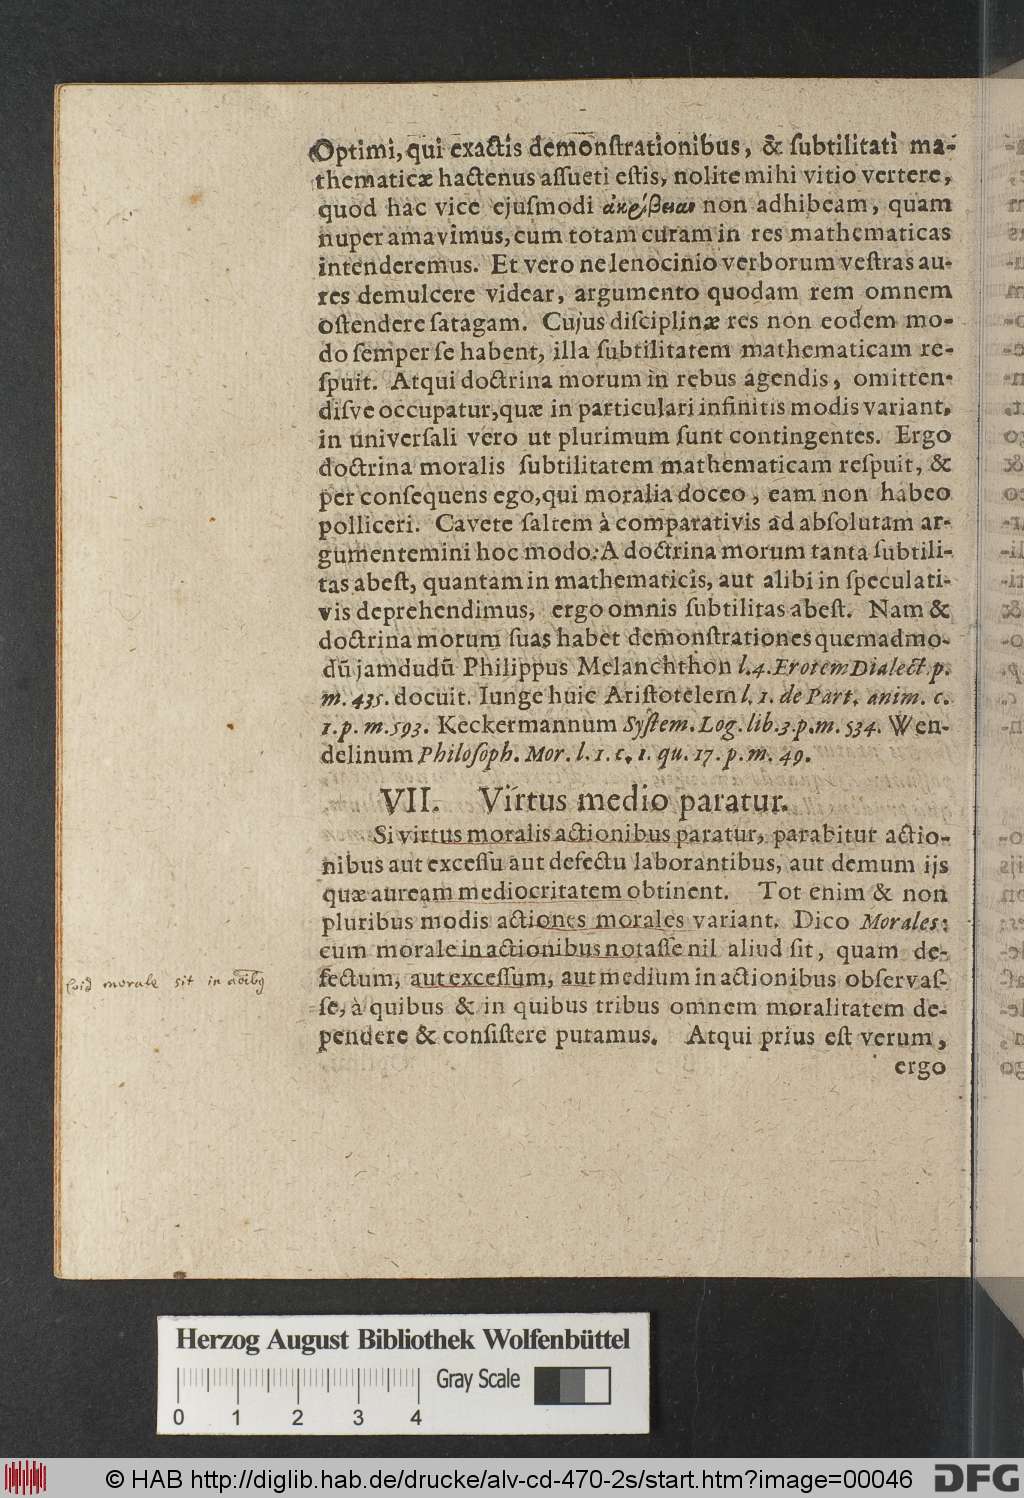 Optimi, qui exactis demonſtrationibus, & ſubtilitati ma-
thematicæ hactenus aſſueti eſtis, nolite mihi vitio vertere,
quod hac vice ejuſmodi ἀκρίβειαν non adhibeam, quam
nuper amavimus, cum totam curam in res mathematicas
intenderemus. Et vero ne lenocinio verborum veſtras au-
res demulcere videar, argumento quodam rem omnem
oſtendere ſatagam. Cujus diſciplinæ res non eodem mo-
do ſemper ſe habent, illa ſubtilitatem mathematicam re-
ſpuit. Atqui doctrina morum in rebus agendis, omitten-
diſve occupatur, quæ in particulari infinitis modis variant,
in univerſali vero ut plurimum ſunt contingentes. Ergo
doctrina moralis ſubtilitatem mathematicam reſpuit, &
per conſequens ego, qui moralia doceo, eam non habeo
polliceri. Cavete ſaltem à comparativis ad abſolutam ar-
gumentemini hoc modo: A doctrina morum tanta ſubtili-
tas abeſt, quantam in mathematicis, aut alibi in ſpeculati-
vis deprehendimus, ergo omnis ſubtilitas abeſt. Nam &
doctrina morum ſuas habet demonſtrationes quemadmo-
dū jamdudū Philippus Melanchthon l. 4. Erotem Dialect. p.
m. 435. docuit. Iunge huic Ariſtotelem l. 1. de Part. anim. c.
1. p. m. 593. Keckermannum Syſtem. Log. lib. 3. p. m. 534. Wen-
delinum Philoſoph. Mor. l. 1. c. 1. qu. 17. p. m. 49.
VII. Virtus medio paratur.
Si virtus moralis actionibus paratur, parabitur actio-
nibus aut exceſſu aut defectu laborantibus, aut demum ijs
quæ auream mediocritatem obtinent. Tot enim & non
pluribus modis actiones morales variant. Dico Morales:
cum morale in actionibus notaſſe nil aliud ſit, quam de-
fectum, aut exceſſum, aut medium in actionibus obſervaſ-
ſe, à quibus & in quibus tribus omnem moralitatem de-
pendere & conſiſtere putamus. Atqui prius eſt verum,
ergo
morale sit in
Herzog August Bibliothek Wolfenbüttel
Gray Scale
0 1 2 3 4
© HAB http://diglib.hab.de/drucke/alv-cd-470-2s/start.htm?image=00046
DFG